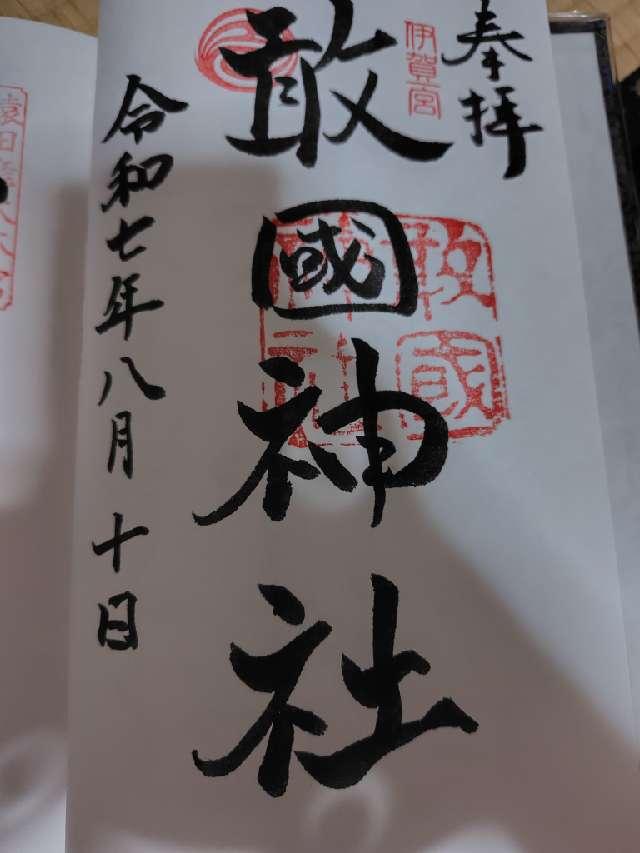 奉拝
伊賀一宮
敢國神社
敢國神社
令和七年八月十日